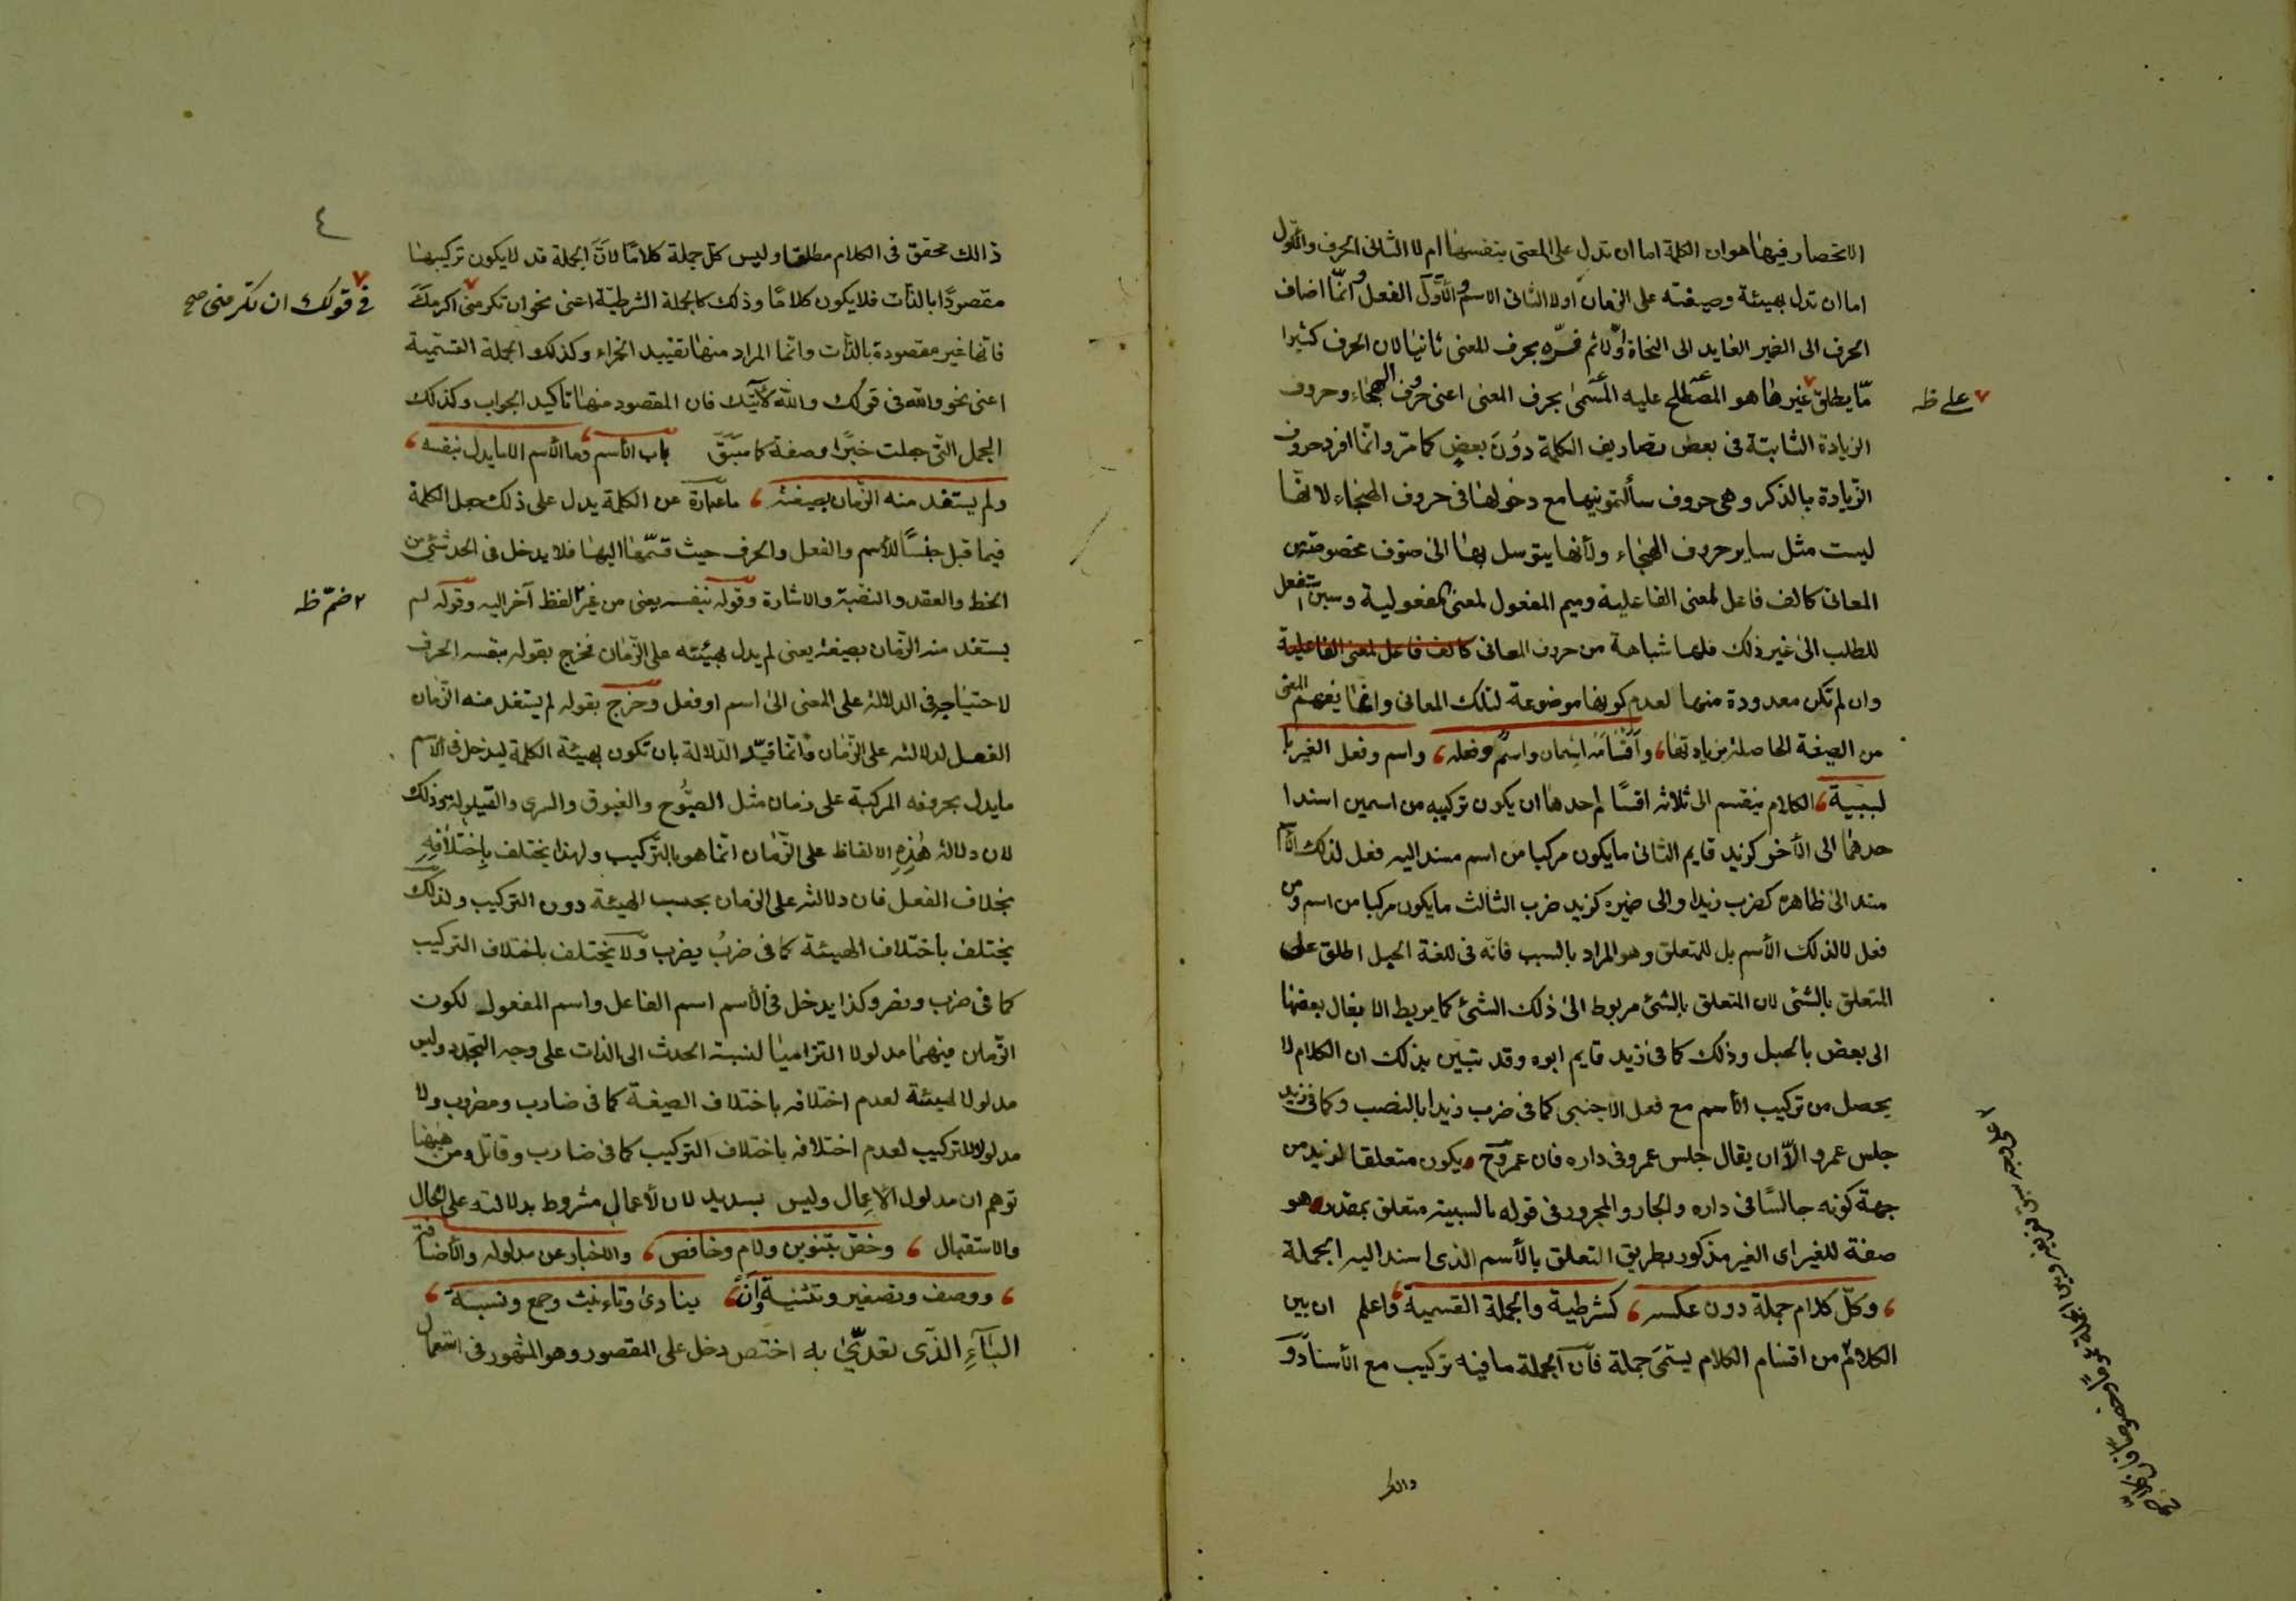 الانحصار فيها هو ان الكلمة اما ان تدل على المعنى بنفسها ام لا الثانى الحرف والاول
اما ان تدل بهيئة وصيغته على الزمان او لا الثانى الاسم والاول الفعل وانما اضاف
الحرف الى الضمير العايد الى النحاة اولا ثم فسره بحرف المعنى ثانيا لان الحرف كثيرا
ما يطلق غيرها هو المصطلح عليه المسمى بحرف المعنى اعنى حرف الهجاء وحروف
الزيادة الثابتة فى بعض تصاريف الكلمة دون بعض كما مر وانما افرد حروف
الزيادة بالذكر وهى حروف سألتمونيها مع دخولها فى حروف الهجاء لانها
ليست مثل ساير حروف الهجاء ولأنها يتوسل بها الى صنوف مخصوصة من
المعانى كالف فاعل لمعنى الفاعلية وميم المفعول لمعنى المفعولية وسين استفعل
للطلب الى غير ذلك فلها شباهة من حروف المعانى كالف فاعل لمعنى الفاعلية
وان لم تكن معدودة منها لعدم كونها موضوعة لتلك المعانى وانما يفهم المعنى
من الصيغة الحاصلة بزيادتها وأقسامه اسمان واسم وفعله واسم وفعل الغير با
لسببية الكلام ينقسم الى ثلاثه اقسام احدها ان يكون تركيبه من اسمين اسند ا
حدهما الى الأخر كزيد قايم الثانى ما يكون مركبا من اسم مسند اليه فعل لذلك الأسم
مسند الى ظاهره كضرب زيد او الى ضميره كزيد ضرب الثالث ما يكون مركبا من اسم ومن
فعل لا لذلك الأسم بل للمتعلق وهو المراد بالسبب فانه فى اللغة الحبل اطلق على
المتعلق بالشئ لان المتعلق بالشئ مربوط الى ذلك الشئ كما يربط الابغال بعضها
الى بعض بالحبل وذلك كما فى زيد قايم ابوه وقد تبين بذلك ان الكلام لا
يحصل من تركيب الأسم مع فعل الاجنبى كما فى ضرب زيدا بالنصب وكما فى زيد
جلس عمرو الا ان يقال جلس عمرو فى داره فان عمرو ح يكون متعلقا لزيد من
جهة كونه جالسا فى داره والجار والمجرور فى قوله بالسببية متعلق بمقدر هو
صفة للغير اى الغير مذكور بطريق التعلق بالأسم الذى اسند اليه الجملة
وكل كلام جملة دون عكسه كشرطية والجملة القسمية واعلم ان بين
الكلام من اقسام الكلام يسمى جملة فان الجملة ما فيه تركيب مع الأسناد و
على ظه
ذالك محقق فى الكلام مطلقا وليس كل جملة كلاما لان الجملة قد لا يكون تركيبها
مقصودا بالذات فلا يكون كلاما وذلك كالجملة الشرطية اعنى نحو ان تكرمنى اكرمك
فانها غير مقصودة بالذات وانما المراد منها تقييد الجزاء وكذلك الجملة القسمية
اعنى نحو والله فى قولك والله لآتينك فان المقصود منها تاكيد الجواب وكذلك
الجمل التى جعلت خبرا وصفة كما سبق باب الأسم وما الأسم الا ما يدل بنفسه
ولم يستفد منه الزمان بصيغته ما عبارة عن الكلمة يدل على ذلك جعل الكلمة
فيما قبل جنسا للأسم والفعل والحرف حيث قسمها اليها فلا يدخل فى الحد شئ من
الخط والعقد والنصبة والاشارة وقوله بنفسه يعنى من غير لفظ آخر اليه وقوله لم
يستفد منه الزمان بصيغته يعنى لم يدل بهيئته على الزمان فخرج بقوله بنفسه الحرف
لاحتياجه فى الدلالة على المعنى الى اسم او فعل وخرج بقوله لم يستفد منه الزمان
الفعل لدلالته على الزمان وانما قيد الدلالة بان تكون بهيئة الكلمة ليدخل فى الأسم
ما يدل بحروفه المركبة على زمان مثل الصبوح والغبوق والسرى والقيلولة وذلك
لان دلالة هذه الالفاظ على الزمان انما هو بالتركيب ولهذا يختلف باختلافه
بخلاف الفعل فان دلالته على الزمان بحسب الهيئة دون التركيب ولذلك
يختلف باختلاف الهيئة كما فى ضرب يضرب ولا يختلف باختلاف التركيب
كما فى ضرب ونصر وكذا يدخل فى الأسم اسم الفاعل واسم المفعول لكون
الزمان فيهما مدلولا التزاميا لنسبة الحدث الى الذات على وجه التجدد وليس
مدلولا لهيئة لعدم اختلافه باختلاف الصيغة كما فى ضارب ومضروب ولا
مدلولا للتركيب لعدم اختلافه باختلاف التركيب كما فى ضارب وقاتل ومن هيهنا
توهم ان مدلول الاعمال وليس بسديد لان لأعمال مشروط بدلالته على الحال
والاستقبال وخص بتنوين ولام وخافض والاخبار عن مدلوله والأضافة
ووصف وتصغير وتثنية وان ينادى وتاءنيث وجمع ونسبة
الباء الذى تعدى به اختص دخل على المقصور وهو المشهور فى استعمال
٤
فى قولك ان تكرمنى صح
٢ ضم ظه